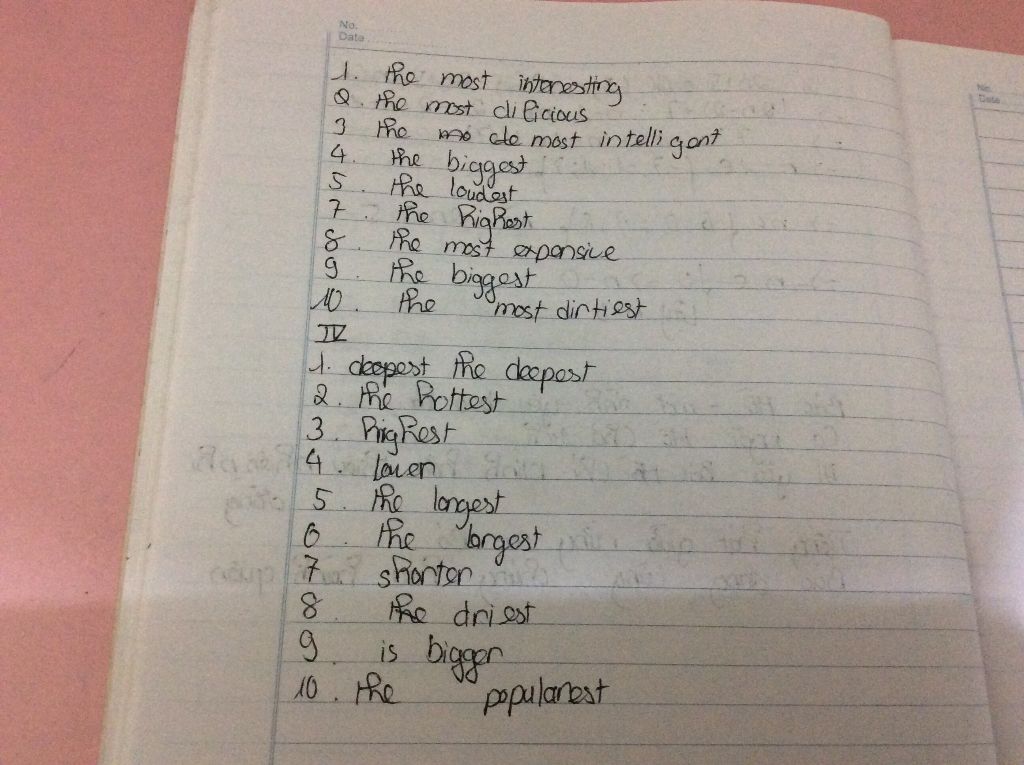 No.
Date
1. the most interesting
2. the most dilicious
3 the mo de most intelligant
4. the biggest
5. the loudest
7. the highest
8. the most expansive
9. the biggest
10. the most dirtiest
IV
1. deepest the deepest
2. the hottest
3. highest
4. lower
5. the longest
6. the largest
7 shorter
8 the driest
9. is bigger
10. the popularest
No.
Date